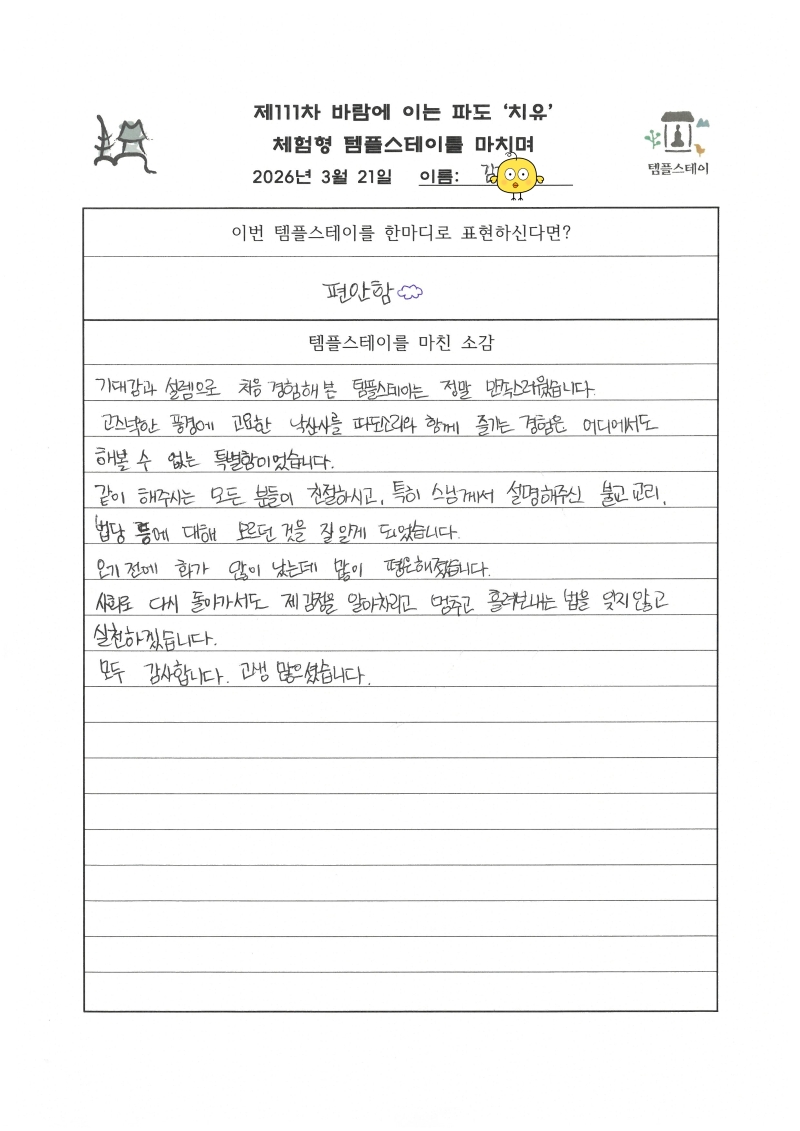 제111차 바람에 이는 파도 '치유'
체험형 템플스테이를 마치며
2026년 3월 21일 이름:
템플스테이
이번 템플스테이를 한마디로 표현하신다면?
편안함
템플스테이를 마친 소감
기대감과 설렘으로 처음 경험해 본 템플스테이는 정말 만족스러웠습니다.
고즈넉한 풍경에 고요한 낙산사를 파도소리와 함께 즐기는 경험은 어디에서도
해볼 수 없는 특별함이었습니다.
같이 해주시는 모든 분들이 친절하시고, 특히 스님께서 설명해주신 불교 교리,
법당 등에 대해 모르던 것을 잘 알게 되었습니다.
오기 전에 화가 많이 났는데 많이 평온해졌습니다.
사회로 다시 돌아가서도 제 감정을 알아차리고 멈추고 흘려보내는 법을 잊지 않고
실천하겠습니다.
모두 감사합니다. 고생 많으셨습니다.